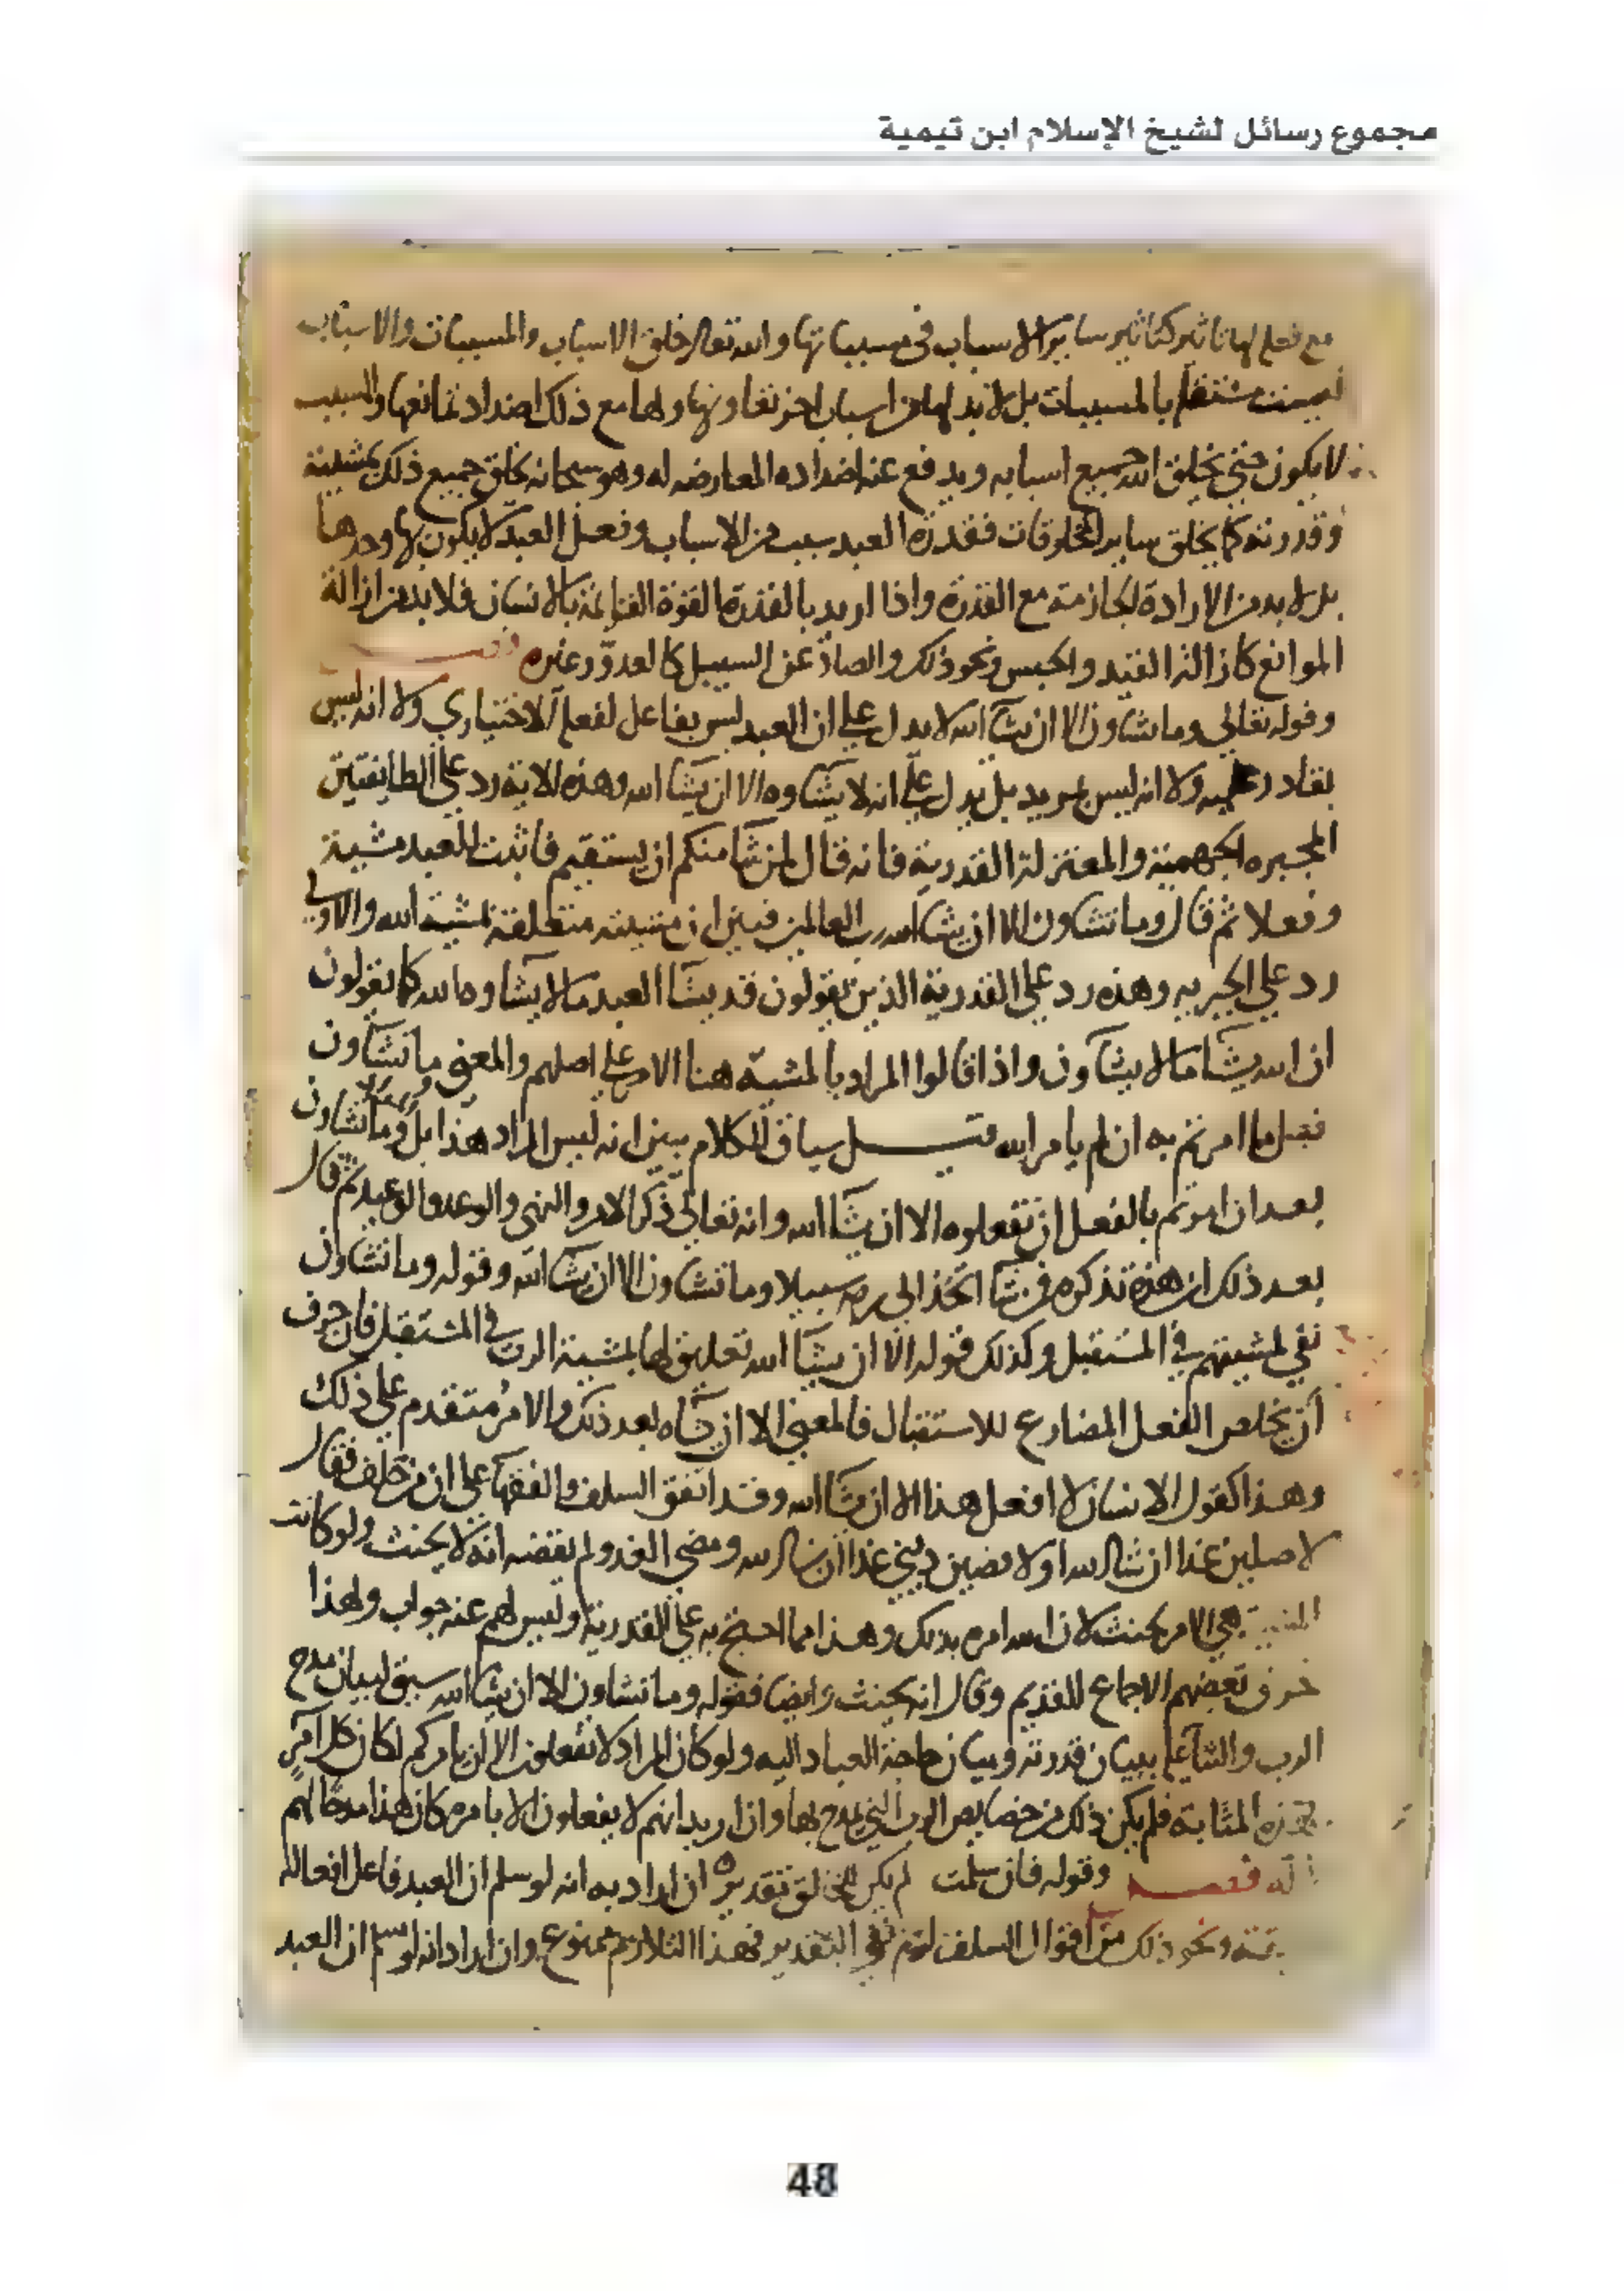 مجموع رسائل لشيخ الإسلام ابن تيمية
مع فعلها تاثير كتاثير ساير الاسباب في مسبباتها والله تعالى خلق الاسباب والمسببات والاسباب
ليست مستقله بالمسببات بل لا بد لها من اسباب اخر تعاونها ولها مع ذلك اضداد تمانعها والمسبب
لا يكون حتى يخلق الله جميع اسبابه ويدفع عنه اضداده المعارضه له وهو سبحانه يخلق جميع ذلك بمشيئته
وقدرته كما يخلق ساير المخلوقات فقدرة العبد سبب من الاسباب وفعل العبد لا يكون بها وحدها
بل لا بد من الارادة الجازمة مع القدرة واذا اريد بالقدرة القوة القائمة بالانسان فلا بد من ازالة
الموانع كازالة القيد والحبس ونحو ذلك والصاد عن السبيل كالعدو وغيره
وقوله تعالى وما تشاون الا ان يشآ الله لا يدل على ان العبد ليس بفاعل لفعله الاختياري ولا انه ليس
بقادر عليه ولا انه ليس بمريد بل يدل على انه لا يشاوه الا ان يشآ الله وهذه الاية رد على الطايفتين
المجبره الجهمية والمعتزلة القدرية فانه قال لمن شآ منكم ان يستقيم فاثبت للعبد مشية
وفعلا ثم قال وما تشاون الا ان يشآ الله رب العالمين فبين ان مشيئته متعلقة بمشية الله والاولى
رد على الجبريه وهذه رد على القدرية الذين يقولون قد يشآ العبد ما لا يشاوه الله كما يقولون
ان الله يشآ ما لا يشآون واذا قالوا المراد بالمشية هنا الامر على اصلهم والمعنى ما تشآون
فعل ما امرتم به ان لم يامر الله قيل سياق الكلام يبين انه ليس المراد هذا بل وما تشاون
بعد ان امرتم بالفعل ان تفعلوه الا ان يشآ الله وانه تعالى ذكر الامر والنهي والوعد والوعيد ثم قال
بعد ذلك ان هذه تذكره فمن شآ اتخذ الى ربه سبيلا وما تشاون الا ان يشآ الله وقوله وما تشاون
نفي لمشيتهم في المستقبل وكذلك قوله الا ان يشآ الله تعليق لها بمشية الرب في المستقبل فان حرف
ان يخلص الفعل المضارع للاستقبال فالمعنى الا ان يشآه بعد ذلك والامر متقدم على ذلك
وهذا كقول الانسان لا افعل هذا الا ان يشآ الله وقد اتفق السلف والفقهآ على ان من حلف فقال
لاصلين غدا ان شا الله او لاقضين ديني غدا ان شا الله ومضى الغد ولم يقضه انه لا يحنث ولو كانت
المشية هي الامر لحنث لان الله امره بذلك وهذا مما احتج به على القدرية وليس لهم عنه جواب ولهذا
خرق بعضهم الاجماع القديم وقال انه يحنث وايضا فقوله وما تشاون الا ان يشآ الله سيق لبيان مدح
الرب والثنآ عليه ببيان قدرته وبيان حاجة العباد اليه ولو كان المراد لا تفعلون الا ان يامركم لكان كل آمر
بهذه المثابة فلم يكن ذلك من خصايص الرب التي يمدح بها وان اريد انهم لا يفعلون الا بامره كان هذا مدحا لهم
لا له فصــــل وقوله فان سلمت لم يكن للخالق تقديره ان اراد به انه لو سلم ان العبد فاعل افعاله
حقيقته ونحو ذلك من اقوال السلف لزم نفي التقدير فهذا التلازم ممنوع وان اراد انه لو سلم ان العبد
48